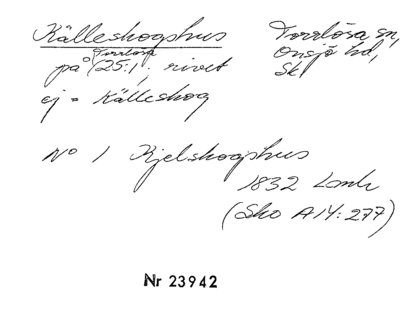 Källeskogshus Torrlösa sn,
Torrlösa Onsjö hd,
på 25:1; rivet Sk
ej = Källeskog
No 1 Kjelskogshus
1832 Lantm
(Sko A14:277)
Nr 23942